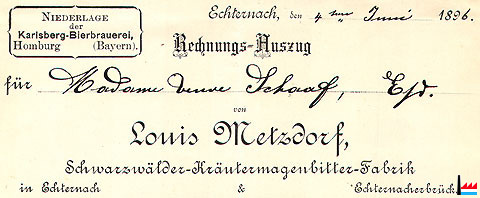 NIEDERLAGE
der
Karlsberg-Bierbrauerei,
Homburg (Bayern).
Echternach, den 4ten Juni 1896.
Rechnungs-Auszug
für Madame veuve Schaaf, Esd.
von
Louis Metzdorf,
Schwarzwälder-Kräutermagenbitter-Fabrik
in Echternach & Echternacherbrück